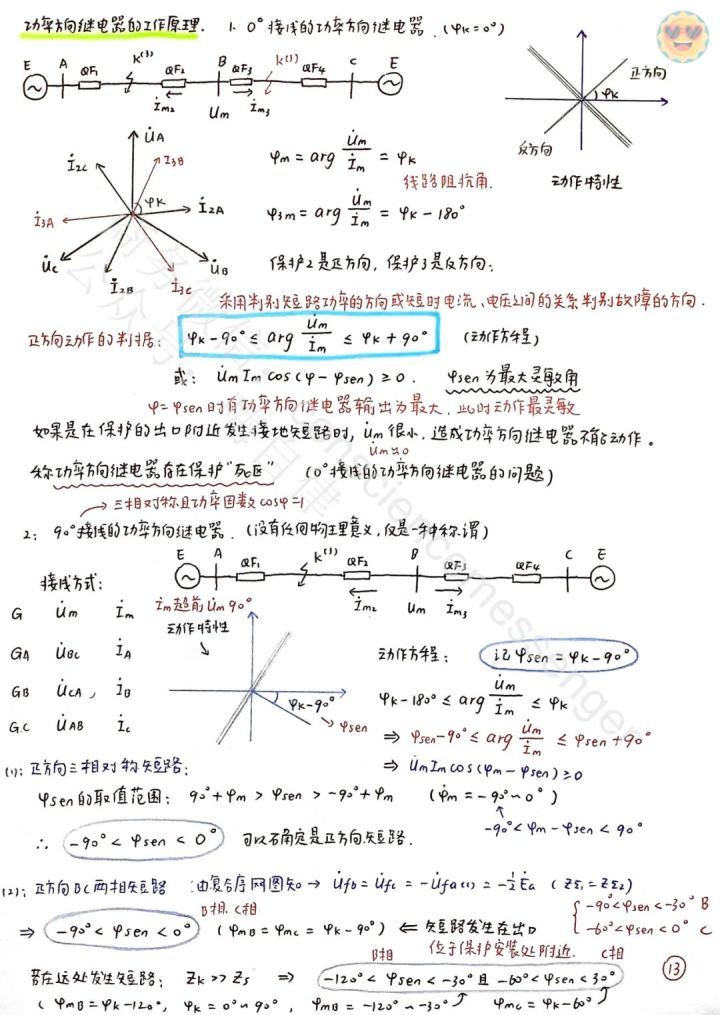 功率方向继电器的工作原理. 1. 0°接线的功率方向继电器. (φk=0°)
E A QF1 K⁽³⁾ QF2 B QF3 K⁽³⁾ QF4 C E
İm2 U̇m İm3
正方向
φk
反方向
动作特性
U̇A
İ2C İ3B
φk
İ3A İ2A
U̇C U̇B
İ2B İ3C
φm = arg U̇m/İm = φk
线路阻抗角.
φ3m = arg U̇m/İm = φk-180°
保护2是正方向, 保护3是反方向;
采用判别短路功率的方向或短时电流、电压之间的关系判别故障的方向.
正方向动作的判据: φk-90° ≤ arg U̇m/İm ≤ φk+90° (动作方程)
或: U̇mIm cos(φ-φsen) ≥ 0. φsen为最大灵敏角
φ=φsen时有功率方向继电器输出为最大. 此时动作最灵敏
如果是在保护的出口附近发生接地短路时, U̇m很小. 造成功率方向继电器不能动作。
U̇m≈0
称功率方向继电器存在保护"死区" (0°接线的功率方向继电器的问题)
三相对称且功率因数cosφ=1
2: 90°接线的功率方向继电器. (没有任何物理意义, 仅是一种称谓)
E A QF1 K⁽³⁾ QF2 B QF3 QF4 C E
İm2 U̇m İm3
接线方式:
G U̇m İm
GA U̇BC İA
GB U̇CA, İB
GC U̇AB İC
İm超前U̇m 90°
动作特性
φk-90°
φsen
动作方程: 记φsen = φk-90°
φk-180° ≤ arg U̇m/İm ≤ φk
⇒ φsen-90° ≤ arg U̇m/İm ≤ φsen+90°
⇒ U̇mIm cos(φm-φsen) ≥ 0
(1): 正方向三相对称短路:
φsen的取值范围: 90°+φm > φsen > -90°+φm (φm = -90°~0°)
-90° < φm-φsen < 90°
∴ -90° < φsen < 0° 可以确定是正方向短路.
(2): 正方向BC两相短路 :由复合序网图知 → U̇fb = U̇fc = -U̇fa(1) = -½Ėa (ZΣ1=ZΣ2)
⇒ -90° < φsen < 0° B相.C相 (φmB = φmC = φk-90°) ⇐ 短路发生在出口
位于保护安装处附近.
{ -90°<φsen<-30° B
-60°<φsen<0° C
若在远处发生短路: Zk >> Zs ⇒ -120° < φsen < -30° 且 -60° < φsen < 30°
B相 C相
(φmB = φk-120°, φk = 0°~90°, φmB = -120°~-30° φmC = φk-60°
13